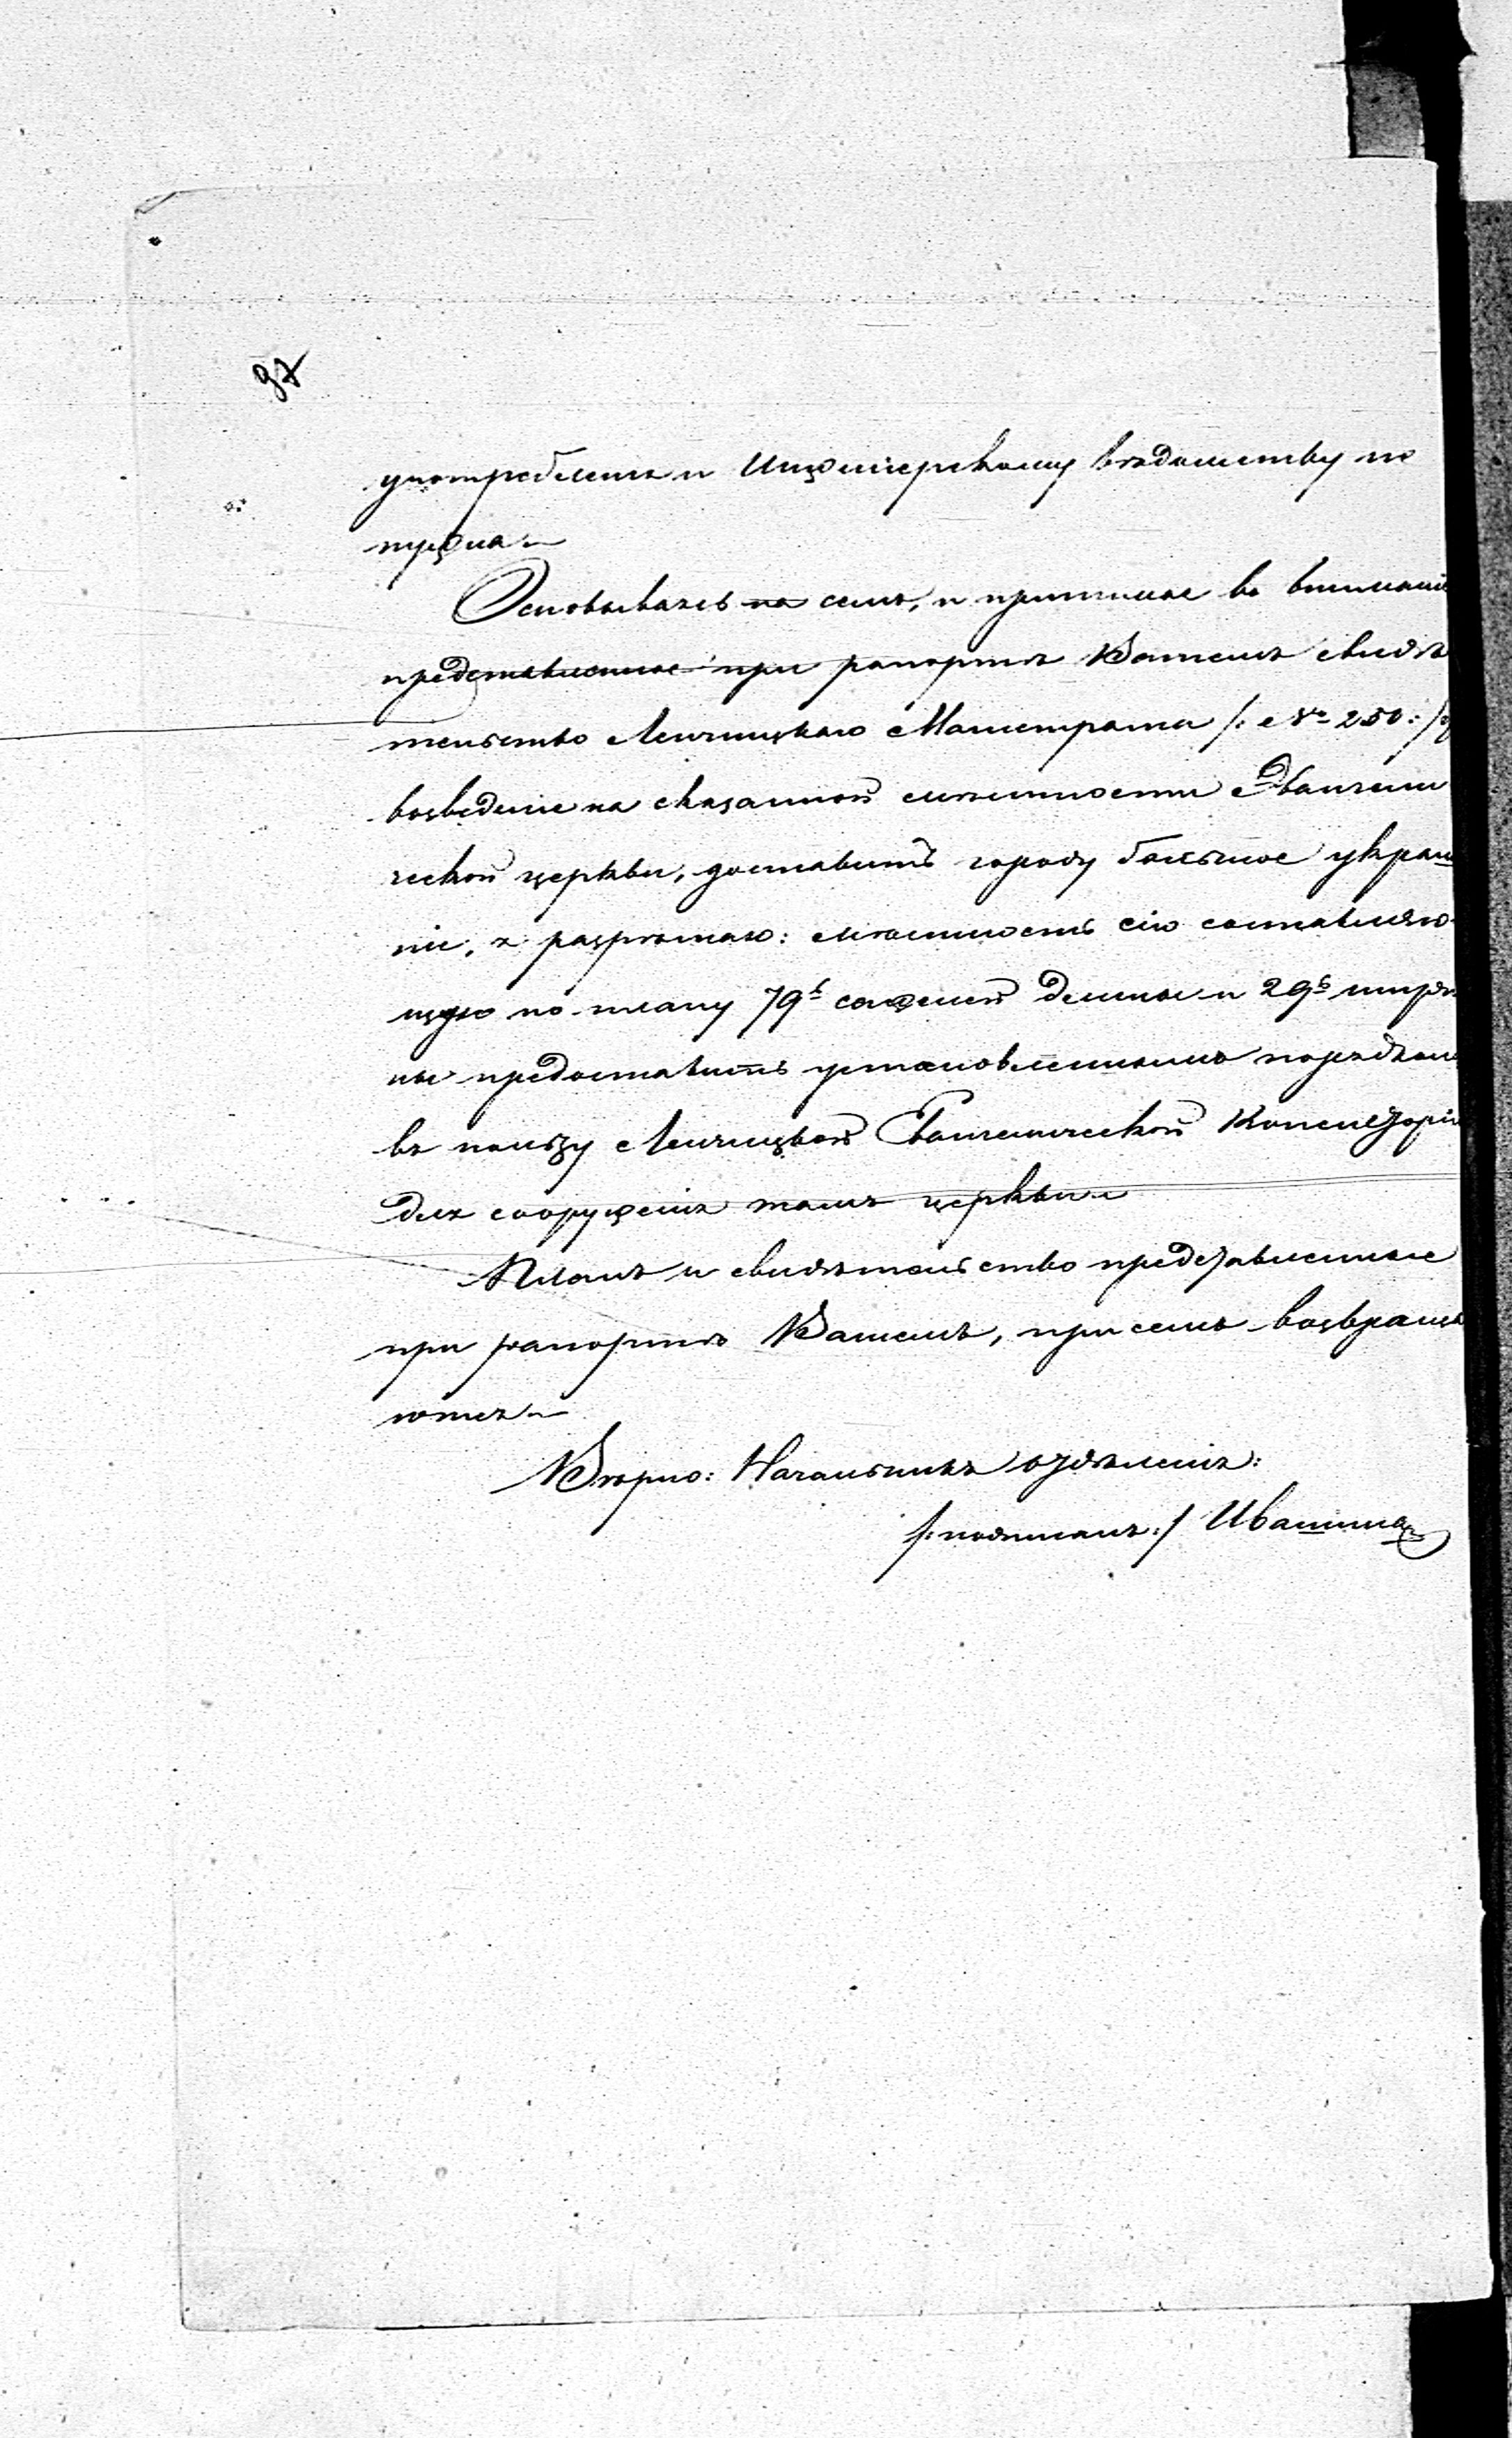 97
употребленія и Инженерному вѣдомству не
нужна.
Основываясь на семъ, и принимая во вниманіе
представленное при рапортѣ Вашемъ свидѣ
тельство Ленчицкаго Магистрата /: № 250: /
возведеніе на сказанной мѣстности Евангели
ческой церкви, доставитъ городу большое украше
ніе, я разрѣшаю: мѣстность сію составляю
щую по плану 79ь саженей длины и 29ь шири
ны предоставить установленнымъ порядкомъ
въ пользу Ленчицкой Евангелической Консисторіи
для сооруженія тамъ церкви.
Планъ и свидѣтельство представленные
при рапортѣ Вашемъ, при семъ возвраща
ются.
Вѣрно: Начальникъ отдѣленія:
/:подписалъ:/